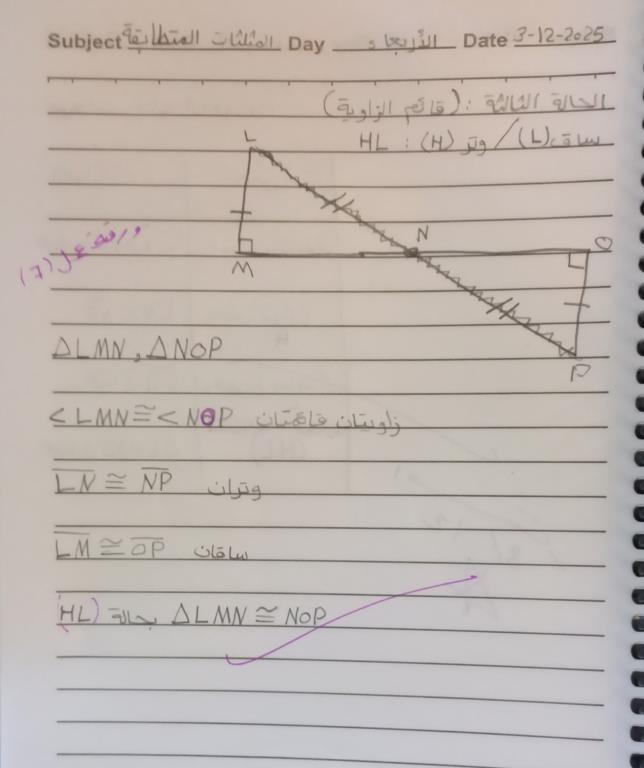 Subject المثلثات المتطابقة Day الأربعاء Date 3-12-2025
الحالة الثالثة : (قائم الزاوية)
ساق (L) / وتر (H) : HL
L
N
O
M
P
(7)
△LMN , △NOP
< LMN ≅ < NOP زاويتان قائمتان
LN ≅ NP وتران
LM ≅ OP ساقان
(HL) بحالة △LMN ≅ NOP